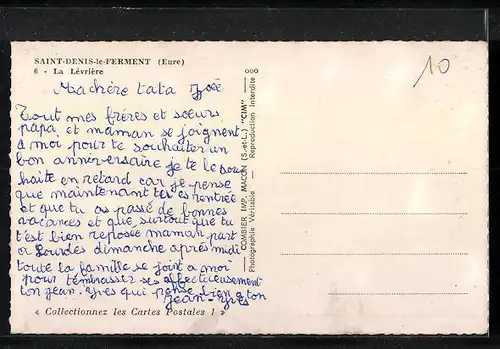 SAINT-DENIS-le-FERMENT (Eure)
6 - La Lévrière
10
Machère tata Zoé
Tout mes frères et sœurs
papa, et maman se joignent
a moi pour te souhaiter un
bon anniversaire je te le sou
haite en retard car je pense
que maintenant tu es rentrée
et que tu as passé de bonnes
vacances et que surtout que tu
t'est bien reposée maman part
a Lourdes dimanche après midi
toute la famille se joint a moi
pour t'embrasser affectueusement
ton jean-Yves qui pense bien a ton
jean-Yves
COMBIER IMP. MACON (S.-et-L.) "CIM"
Photographie Véritable - Reproduction interdite
« Collectionnez les Cartes Postales ! »